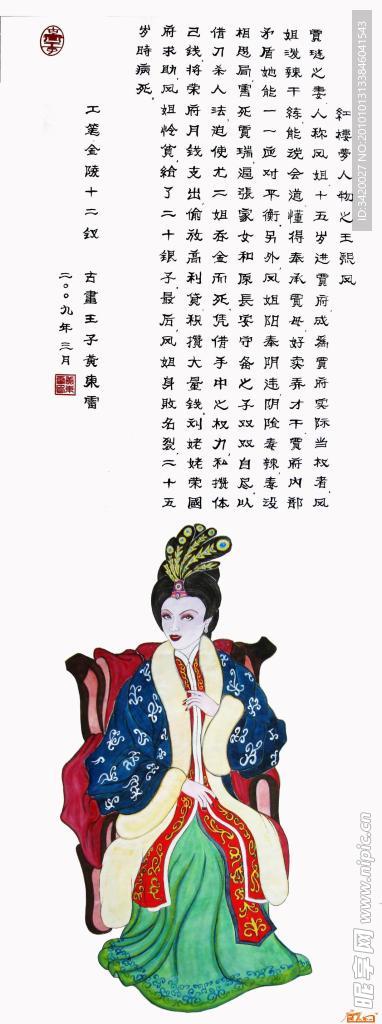 紅樓夢人物之王熙凤
賈琏之妻人称凤姐十五岁进賈府成為賈府实际当权者.凤
姐泼辣干練能说会道懂得奉承賈母好卖弄才干賈府内部
矛盾她能一一应对平衡另外凤姐阳奉阴违阴险毒辣毒没
相思局害死賈瑞逼張家女和原長安守备之子双双自尽以
借刀杀人法迫使尤二姐吞金而死凭借手中之权力私攒体
己钱将荣府月钱支出偷放高利貸积攒大量钱刘姥姥荣國
府求助凤姐怜貧給了二十銀子最后凤姐身敗名裂二十五
岁時病死.
工笔金陵十二釵
古畫王子黄東雷
二〇〇九年三月
ID:3420027 NO:20101013133846041543
昵享网 www.nipic.cn